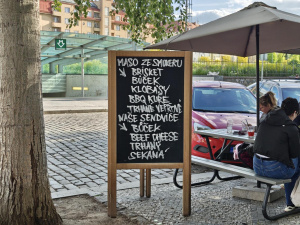 MASO ZE SMOKERU
BRISKET
BŮČEK
KLOBÁSY
BBQ KUŘE
TRHANÉ VEPŘOVÉ
NAŠE SENDVIČE
BŮČEK
BEEF CHEESE
TRHANÝ
„SEKANÁ"